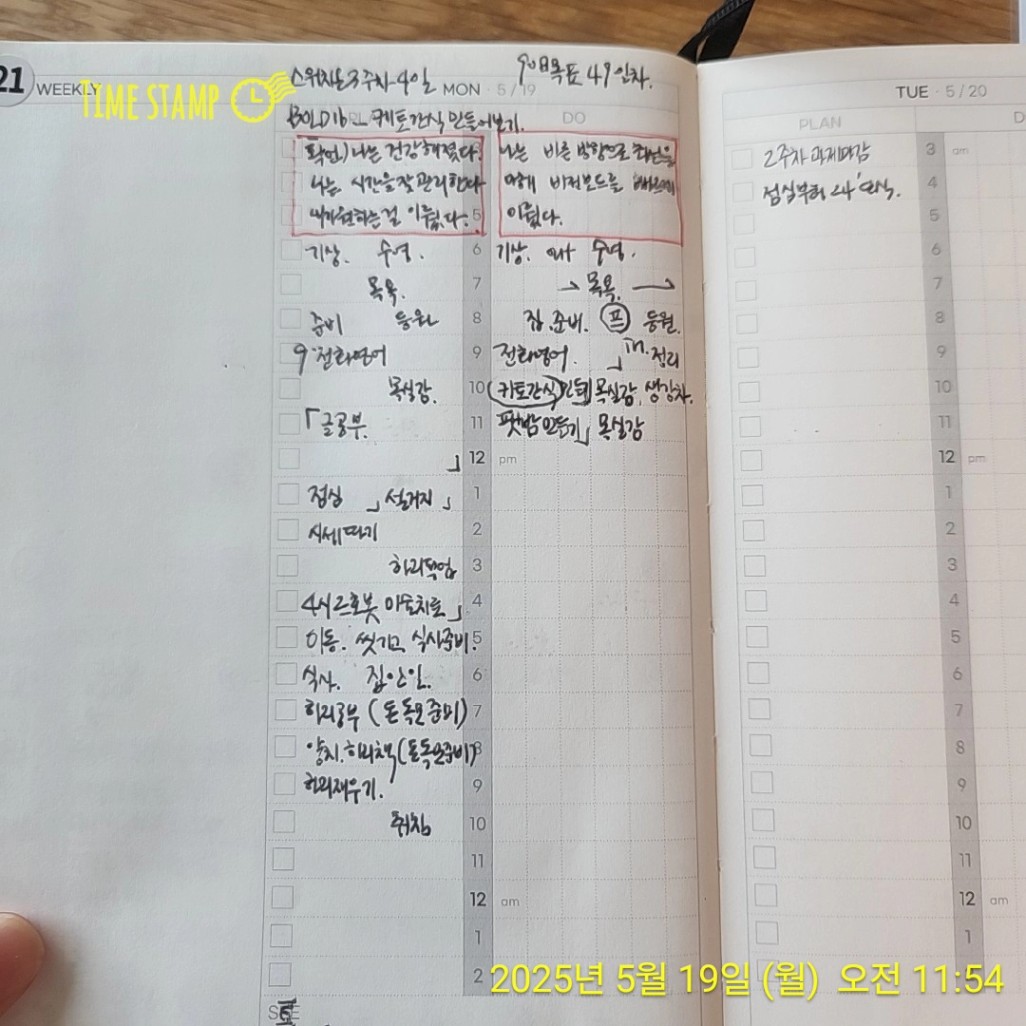 21 WEEKLY
TIME STAMP
스위치온 3주차 4일 90일목표 49일차.
MON · 5/19
BOLD16 키토간식 만들어보기.
DO
확언) 나는 건강해졌다.
나는 시간을 잘 관리한다
내가 원하는 걸 이뤘다.
나는 바른 방향으로 최선을
다해 비전보드를
이뤘다.
5
기상. 수영. 6 기상. 수영.
목욕. 7 → 목욕. →
준비 등원 8 집.준비. 등원.
9 전화영어 9 전화영어. 정리
목실감. 10 키토간식 만들기 목실감, 생강차.
「글공부. 11 팥밤만들기」 목실감
」 12 pm
점심 」 설거지 」 1
시세따기 2
3
4시 미술치료」 4
이동. 씻기고 식사준비. 5
식사. 집안일. 6
(돈독모 준비) 7
양치. (돈독모준비) 8
재우기. 9
취침 10
11
12 am
1
2
TUE · 5/20
PLAN D
2주차 과제마감 3 am
점심부터 24 단식. 4
5
6
7
8
9
10
11
12 pm
1
2
3
4
5
6
7
8
9
10
11
12 am
1
2025년 5월 19일 (월) 오전 11:54